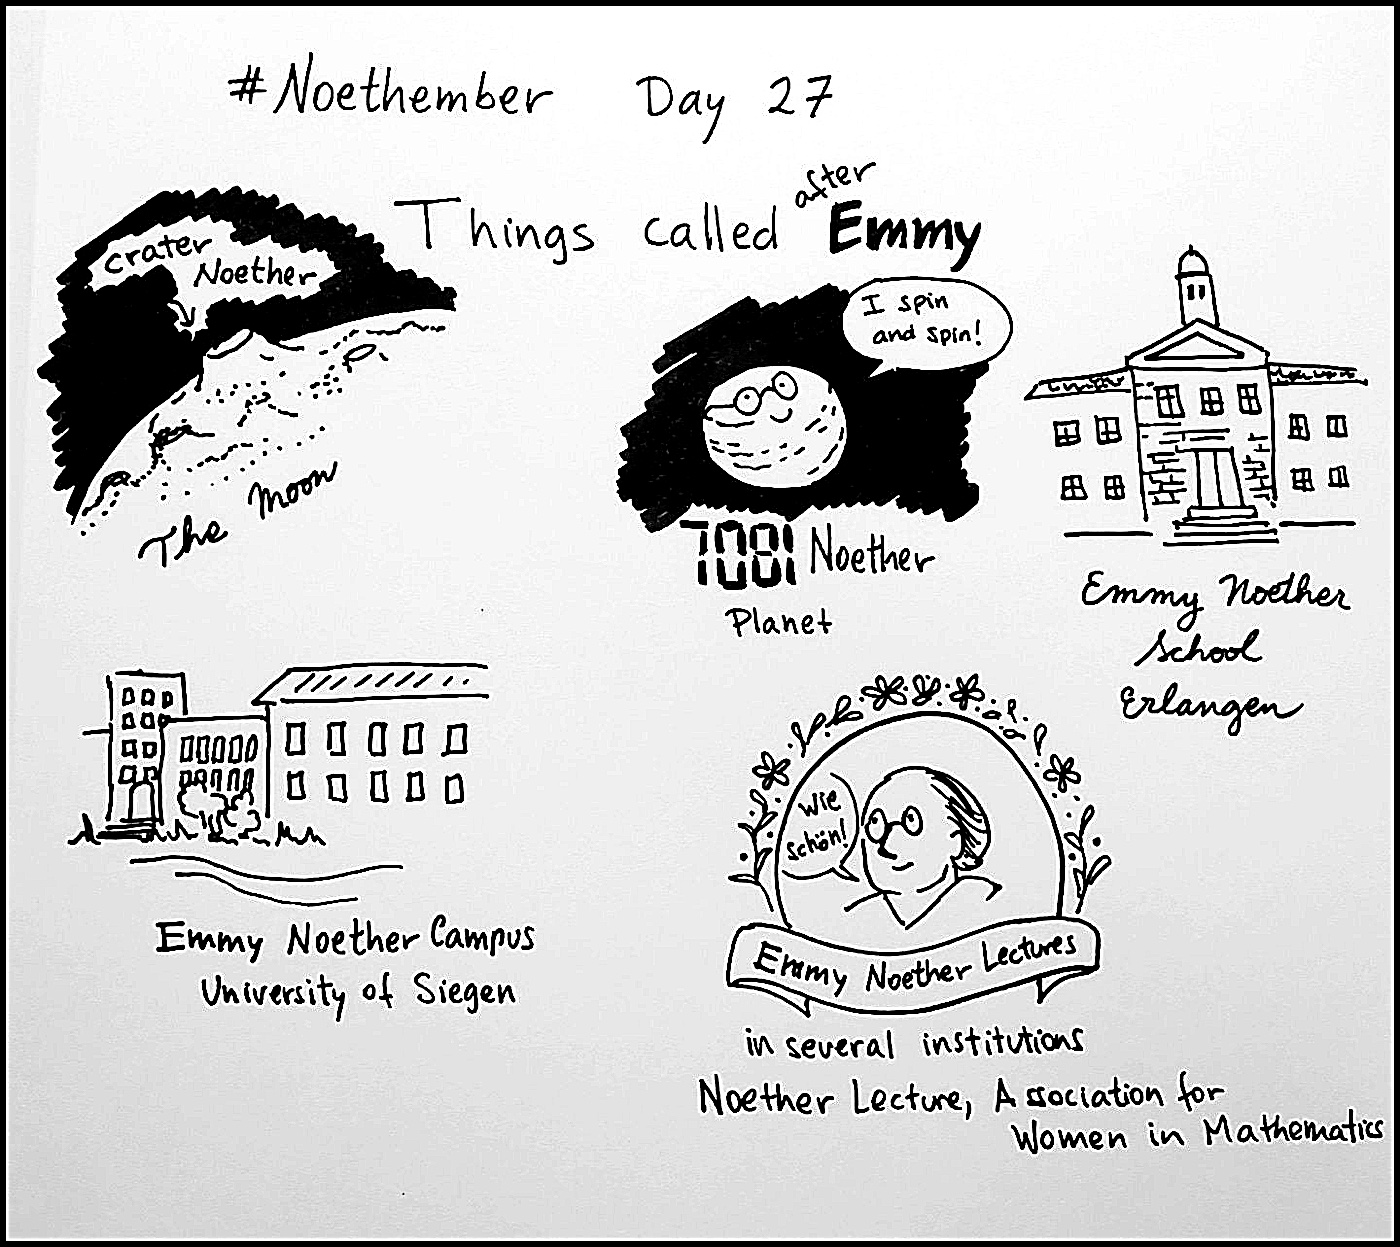 #Noethember Day 27
Things called after Emmy
crater
Noether
The Moon
I spin
and spin!
7081 Noether
Planet
Emmy Noether
School
Erlangen
Emmy Noether Campus
University of Siegen
Wie
schön!
Emmy Noether Lectures
in several institutions
Noether Lecture, Association for
Women in Mathematics